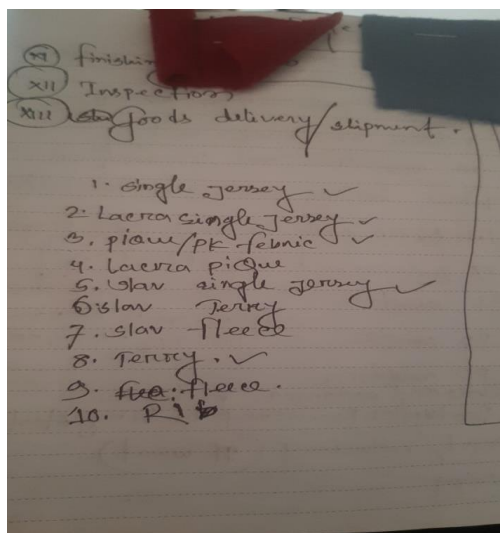 XI finishing
XII Inspection
XIII Goods delivery/shipment.
1. single jersey ✓
2. Lacra single jersey ✓
3. pique/PK febric ✓
4. Lacra pique
5. slav single jersey ✓
6. slav Terry
7. slav fleece
8. Terry. ✓
9. fleece.
10. Rib